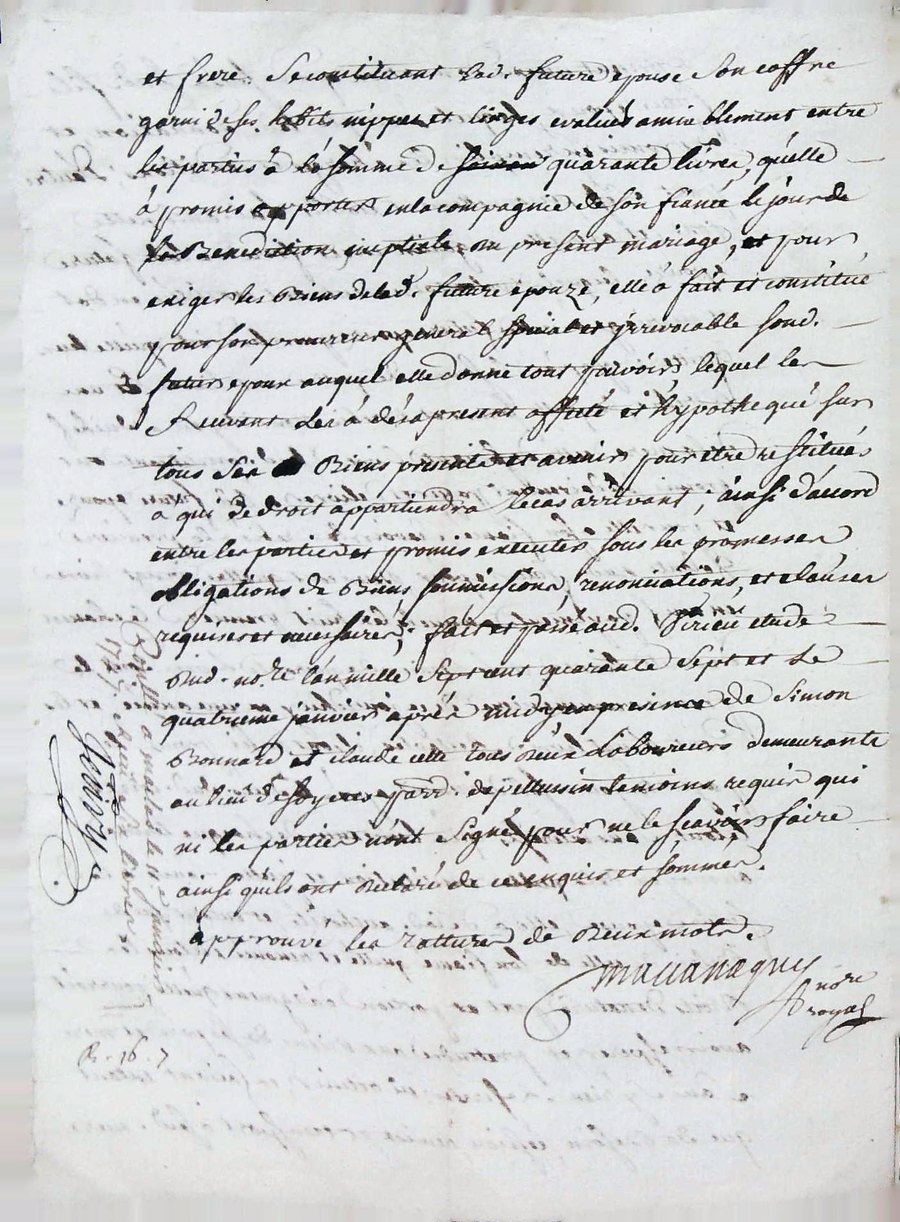 et frere. Se constituant lad. future epouse Son coffre
garni de ses habits nippes et linges evalués amiablement entre
les parties à la somme de quarante livres, qu'elle
à promis apporter en la compagnie de son fiancé le jour de
la Benediction nuptiale du present mariage, et pour
exiger les Biens de lad. future epouze, elle à fait et constitué
pour son procureur general special et irrevocable sond.
futur epoux auquel elle donne tout pouvoir, lequel les
recevant les à dés à present affecté et hypothequé sur
tous ses Biens presents et avenir pour etre restitués
a qui de droit appartiendra le cas arrivant; ainsi d'accord
entre les parties et promis executer sous les promesses
obligations de Biens soumissions, renonciations, et clauses
requises et necessaires, fait et passé aud. etude
dud. no.re l'an mille Sept cent quarante Sept et le
quatrieme janvier aprés midy, en presence de Simon
Bonnard et claude cette tous deux Laboureurs demeurants
au lieu de Soyeres parr. de pellussin temoins requis qui
ni les parties n'ont Signé pour ne le sçavoir faire
ainsi qu'ils ont declaré de ce enquis et sommés.
approuve les rattures de deux mots.
nore
royal
a le 11e janvier
R. 16. 7